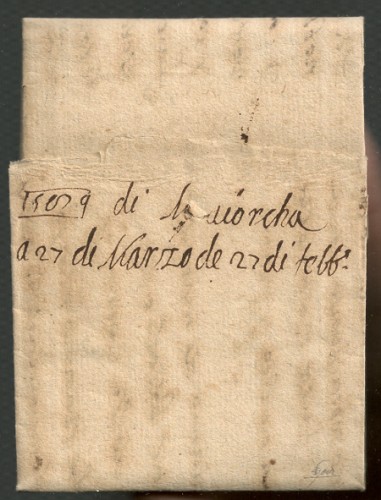 1579 di Maiorcha
a 27 di Marzo de 27 di febbr.